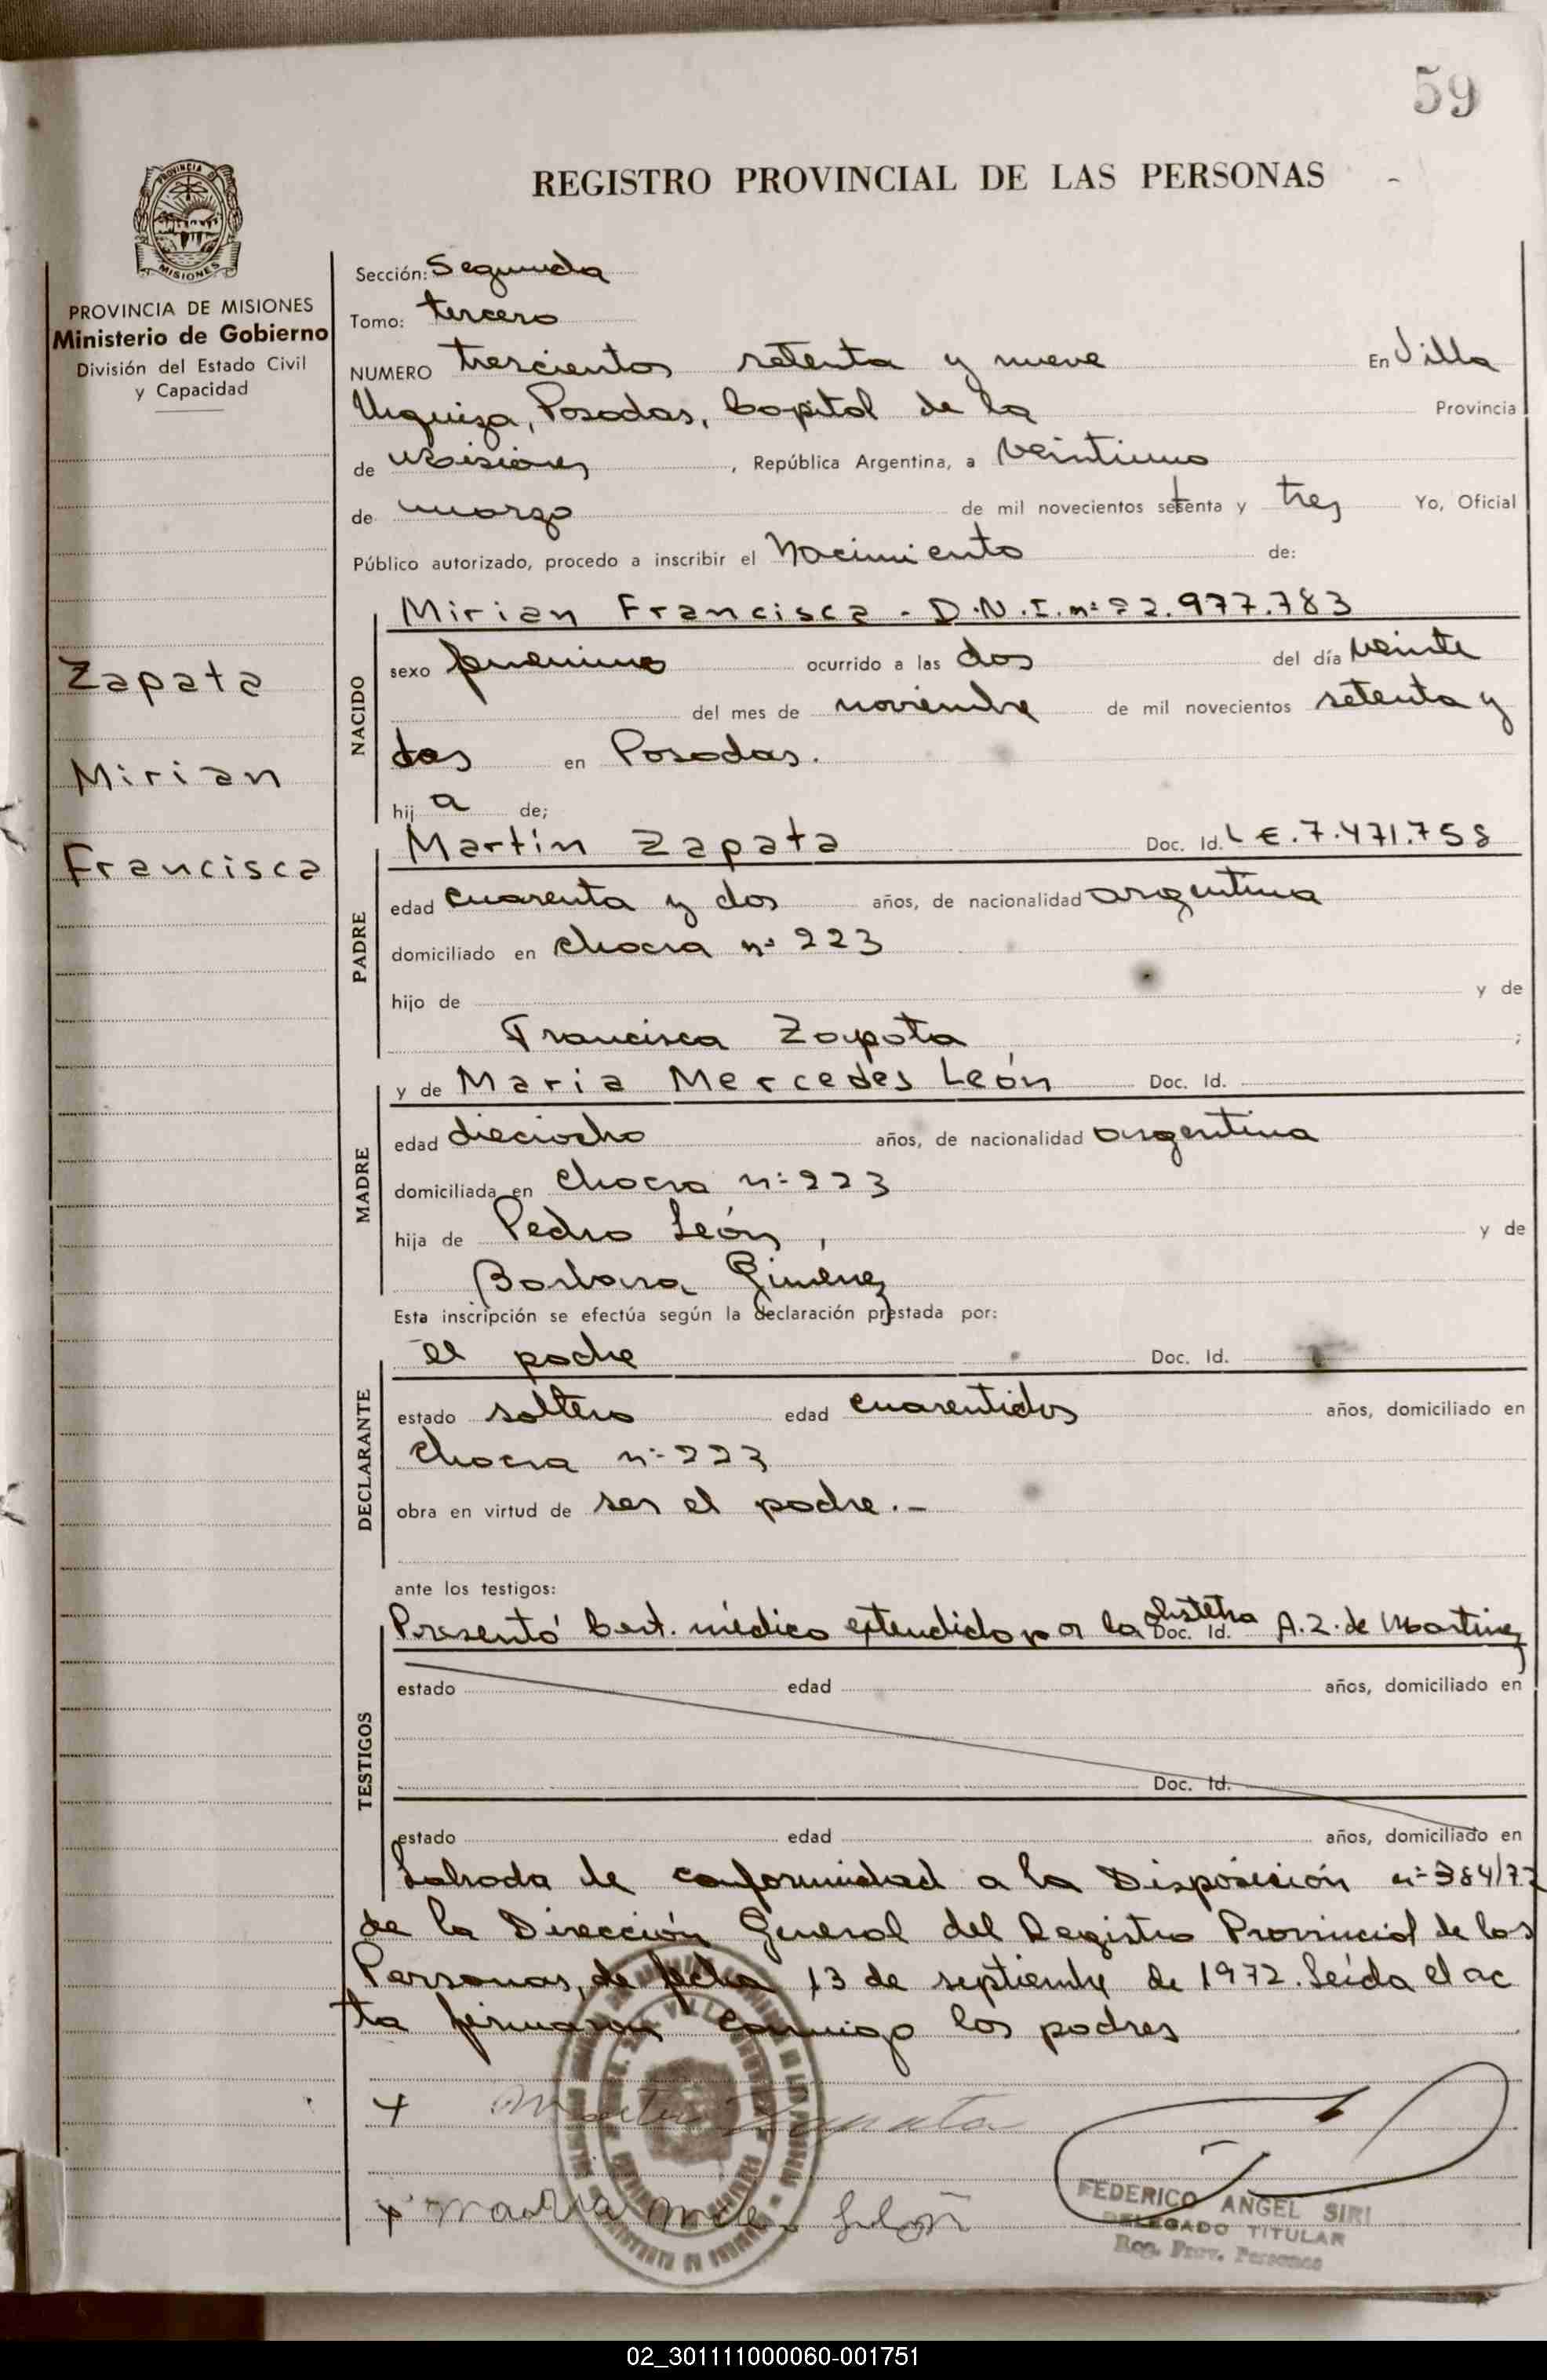 59
REGISTRO PROVINCIAL DE LAS PERSONAS
PROVINCIA DE
MISIONES
PROVINCIA DE MISIONES
Ministerio de Gobierno
División del Estado Civil
y Capacidad
Zapata
Mirian
Francisca
Sección: Segunda
Tomo: tercero
NUMERO trescientos setenta y nueve En Villa
Urquiza, Posadas, Capital de la Provincia
de Misiones, República Argentina, a veintiuno
de marzo de mil novecientos setenta y tres Yo, Oficial
Público autorizado, procedo a inscribir el Nacimiento de:
NACIDO
Mirian Francisca - D.N.I. nº 22.977.783
sexo femenino ocurrido a las dos del día veinte
del mes de noviembre de mil novecientos setenta y
dos en Posadas.
hij a de;
PADRE
Martín Zapata Doc. Id. L E. 7.471.758
edad cuarenta y dos años, de nacionalidad argentina
domiciliado en chacra nº 223
hijo de y de
Francisca Zapata ;
MADRE
y de Maria Mercedes León Doc. Id.
edad dieciocho años, de nacionalidad argentina
domiciliada en chacra nº 223
hija de Pedro León, y de
Barbara Giménez
Esta inscripción se efectúa según la declaración prestada por:
DECLARANTE
el padre Doc. Id.
estado soltero edad cuarentidos años, domiciliado en
chacra nº 223
obra en virtud de ser el padre.-
ante los testigos:
TESTIGOS
Presentó Cert. médico extendido por la obstetra Doc. Id. A. Z. de Martinez
estado edad años, domiciliado en
Doc. Id.
estado edad años, domiciliado en
Labrada de conformidad a la Disposición nº 384/72
de la Dirección General del Registro Provincial de las
Personas, de fecha 13 de septiembre de 1972. Leída el ac
ta firmaron conmigo los padres
x Martin Zapata
x Maria León
FEDERICO ANGEL SIRI
DELEGADO TITULAR
Reg. Prov. Personas
02_301111000060-001751